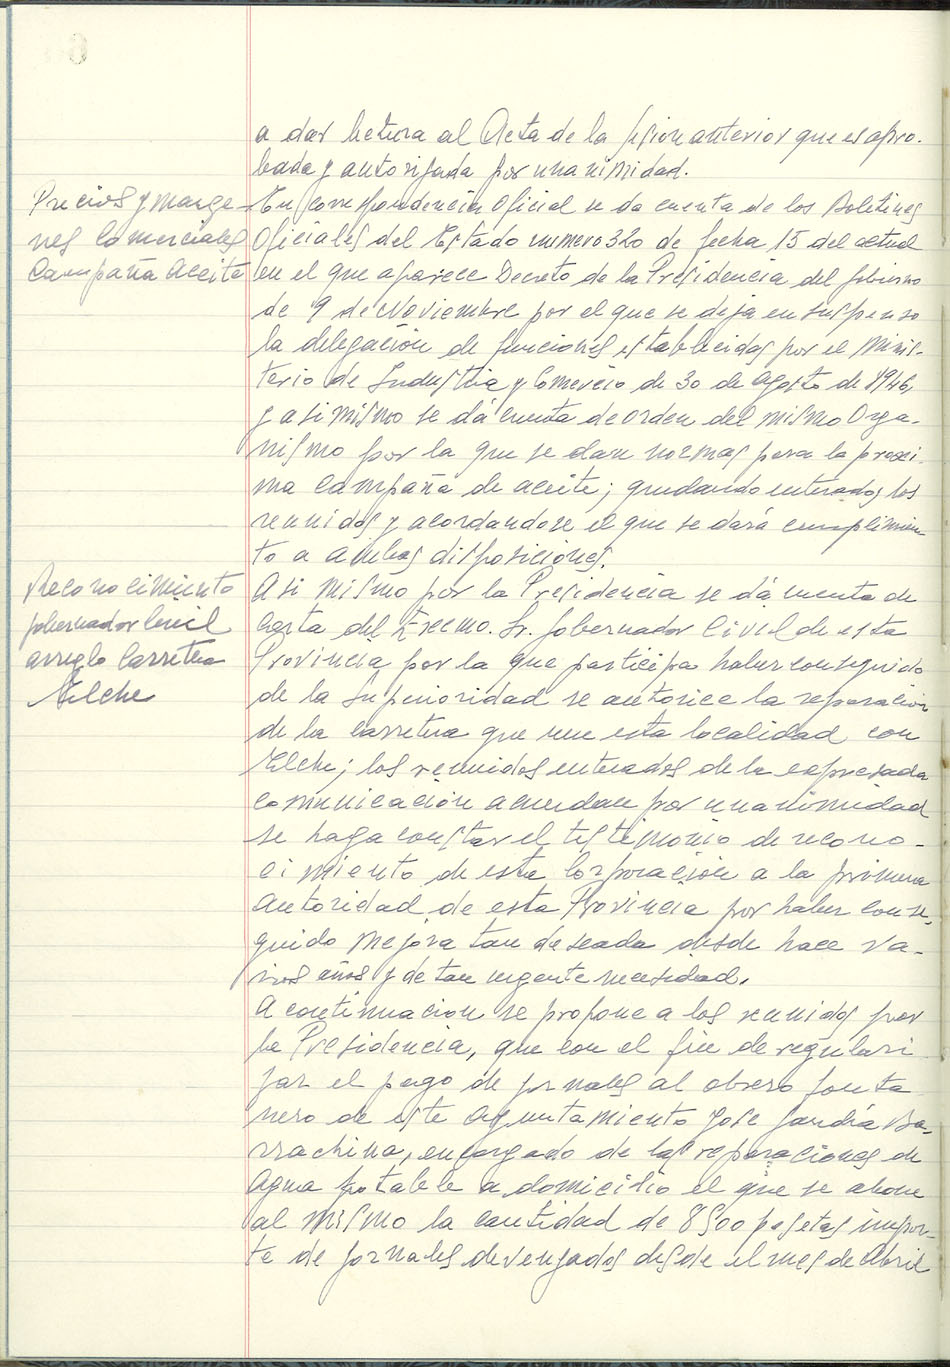 a dar lectura al Acta de la sesion anterior que es apro-
bada y autorizada por unanimidad.
Precios y marge-
nes Comerciales
Campaña Aceite
En correspondencia Oficial se da cuenta de los Boletines
Oficiales del Estado numero 320 de fecha 15 del actual
en el que aparece Decreto de la Presidencia del Gobierno
de 9 de Noviembre por el que se deja en suspenso
la delegación de funciones establecidas por el Minis-
terio de Industria y Comercio de 30 de Agosto de 1946,
y asi mismo se dá cuenta de orden del mismo Orga-
nismo por la que se dan normas para la proxi-
ma Campaña de aceite; quedando enterados los
reunidos y acordandose el que se dará cumplimien
to a ambas disposiciones.
Reconocimiento
Gobernador Civil
arreglo Carretera
Elche
Asi mismo por la Presidencia se dá cuenta de
Carta del Excmo. Sr. Gobernador Civil de esta
Provincia por la que participa haber conseguido
de la Superioridad se autorice la reparación
de la Carretera que une esta localidad con
Elche; los reunidos enterados de la expresada
comunicación acuerdan por unanimidad
se haga constar el testimonio de recono-
cimiento de esta Corporación a la primera
Autoridad de esta Provincia por haber conse-
guido mejora tan deseada desde hace va-
rios años y de tan urgente necesidad.
A continuacion se propone a los reunidos por
la Presidencia, que con el fin de regulari
zar el pago de jornales al obrero fonta
nero de este Ayuntamiento Jose Gandía Ba-
rrachina, encargado de las reparaciones de
Agua potable a domicilio el que se abone
al mismo la cantidad de 8500 pesetas impor-
te de jornales devengados desde el mes de Abril